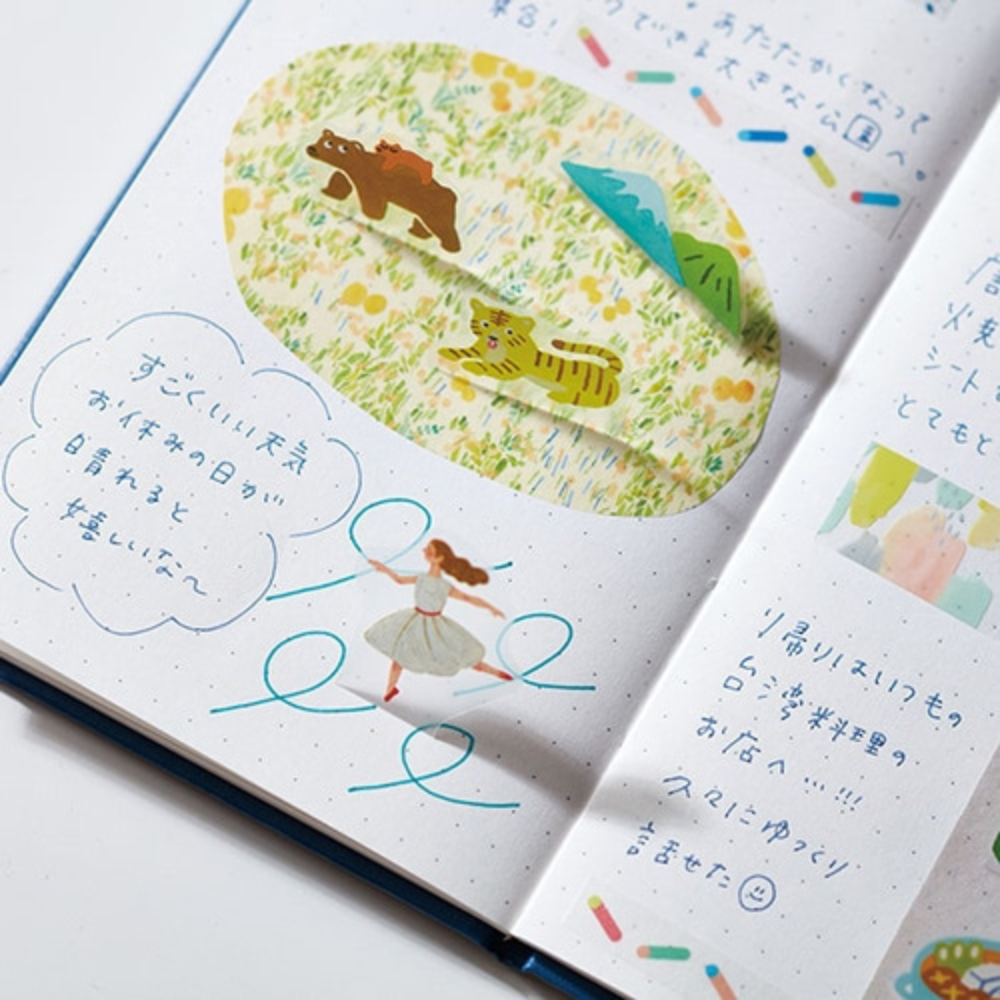 ・あたたかくなって
クできる大きな公園へ。
集合！
すごくいい天気
お休みの日が
日晴れると
嬉しいな〜
シート
とてもと
帰りはいつもの
台湾料理の
お店へ…!!!
久々にゆっくり
話せた